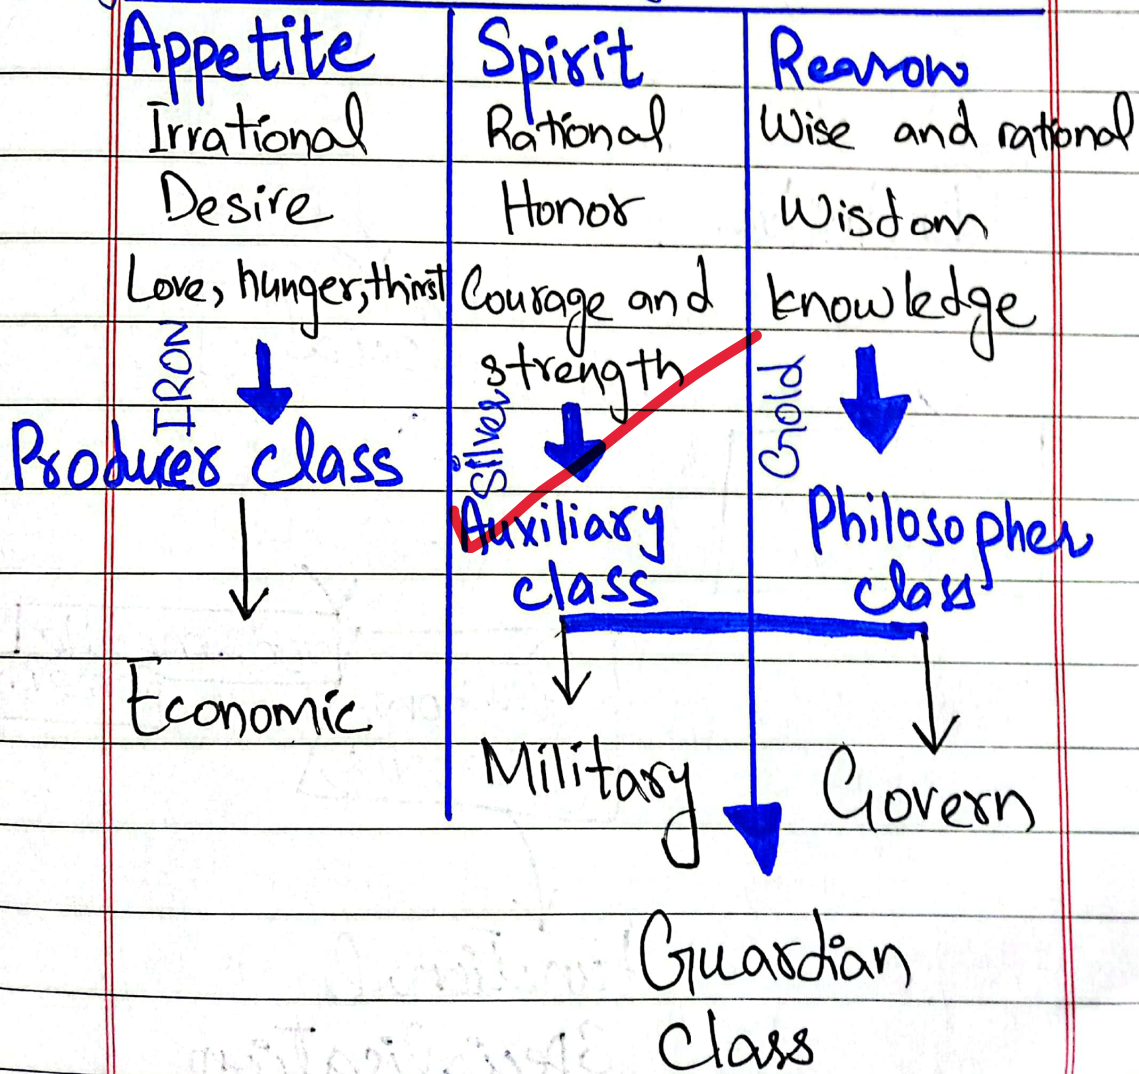 Appetite
Irrational
Desire
Love, hunger, thirst
IRON
Producer class
Economic
Spirit
Rational
Honor
Courage and
strength
Silver
Auxiliary
class
Military
Reason
Wise and rational
Wisdom
knowledge
Gold
Philosopher
class
Govern
Guardian
class